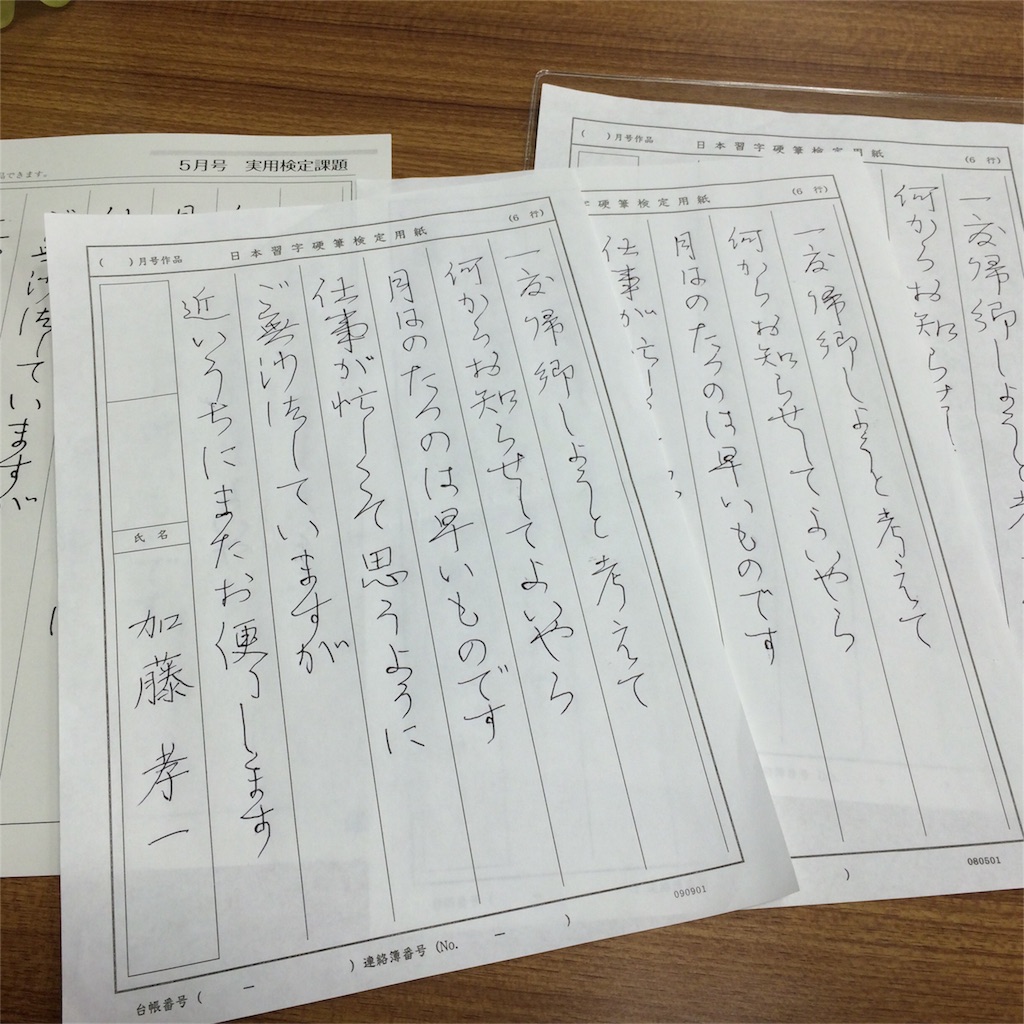 5月号 実用検定課題
無沙汰していますが
( )月号作品 日本習字硬筆検定用紙 (6 行)
一度帰郷しようと考えて
何からお知らせしてよいやら
月日のたつのは早いものです
仕事が忙しくて思うように
ご無沙汰していますが
近いうちにまたお便りします
氏名
加藤 孝一
090901
台帳番号( － )連絡簿番号(No. － )
字硬筆検定用紙 (6 行)
一度帰郷しようと考えて
何からお知らせしてよいやら
月日のたつのは早いものです
仕事が忙し
( )月号作品 日本習字硬筆検定用紙 (6 行)
一度帰郷しようと考
何からお知らせし
080501